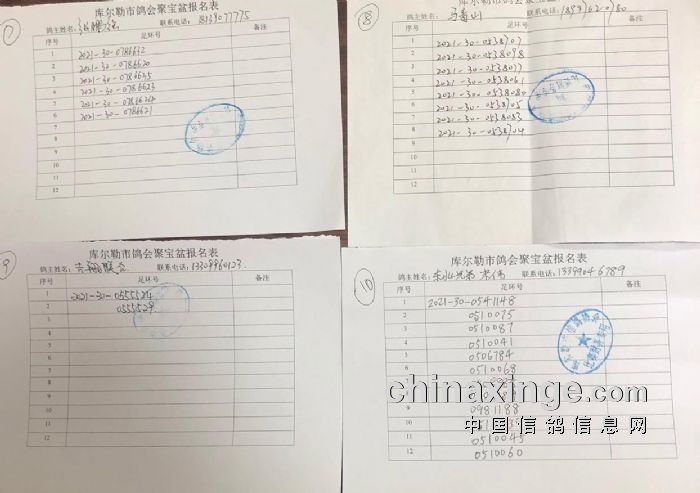 7
库尔勒市鸽会聚宝盆报名表
鸽主姓名: 联系电话: 18139077775
序号 足环号 备注
1 2021-30-0786632
2 2021-30-0786620
3 2021-30-0786635
4 2021-30-0786623
5 2021-30-0786626
6 2021-30-0786621
7
8
9
10
11
12
8
库尔勒市鸽会聚宝盆报名表
鸽主姓名: 马青山 联系电话:
序号 足环号 备注
1 2021-30-0538107
2 2021-30-0538098
3 2021-30-0538077
4 2021-30-0538061
5 2021-30-0538080
6 2021-30-0538105
7 2021-30-0538083
8 2021-30-0538104
9
10
11
12
9
库尔勒市鸽会聚宝盆报名表
鸽主姓名: 联系电话: 13309960123
序号 足环号 备注
1 2021-30-0555524
2 0555529
3
4
5
6
7
8
9
10
11
12
10
库尔勒市鸽会聚宝盆报名表
鸽主姓名: 东北兄弟 宋伟 联系电话: 13899046789
序号 足环号 备注
1 2021-30-0541148
2 0510075
3 0510087
4 0510041
5 0506784
6 0510068
7
8
9 0981188
10
11 0510045
12 0510060
www.chinaxinge.com
中国信鸽信息网